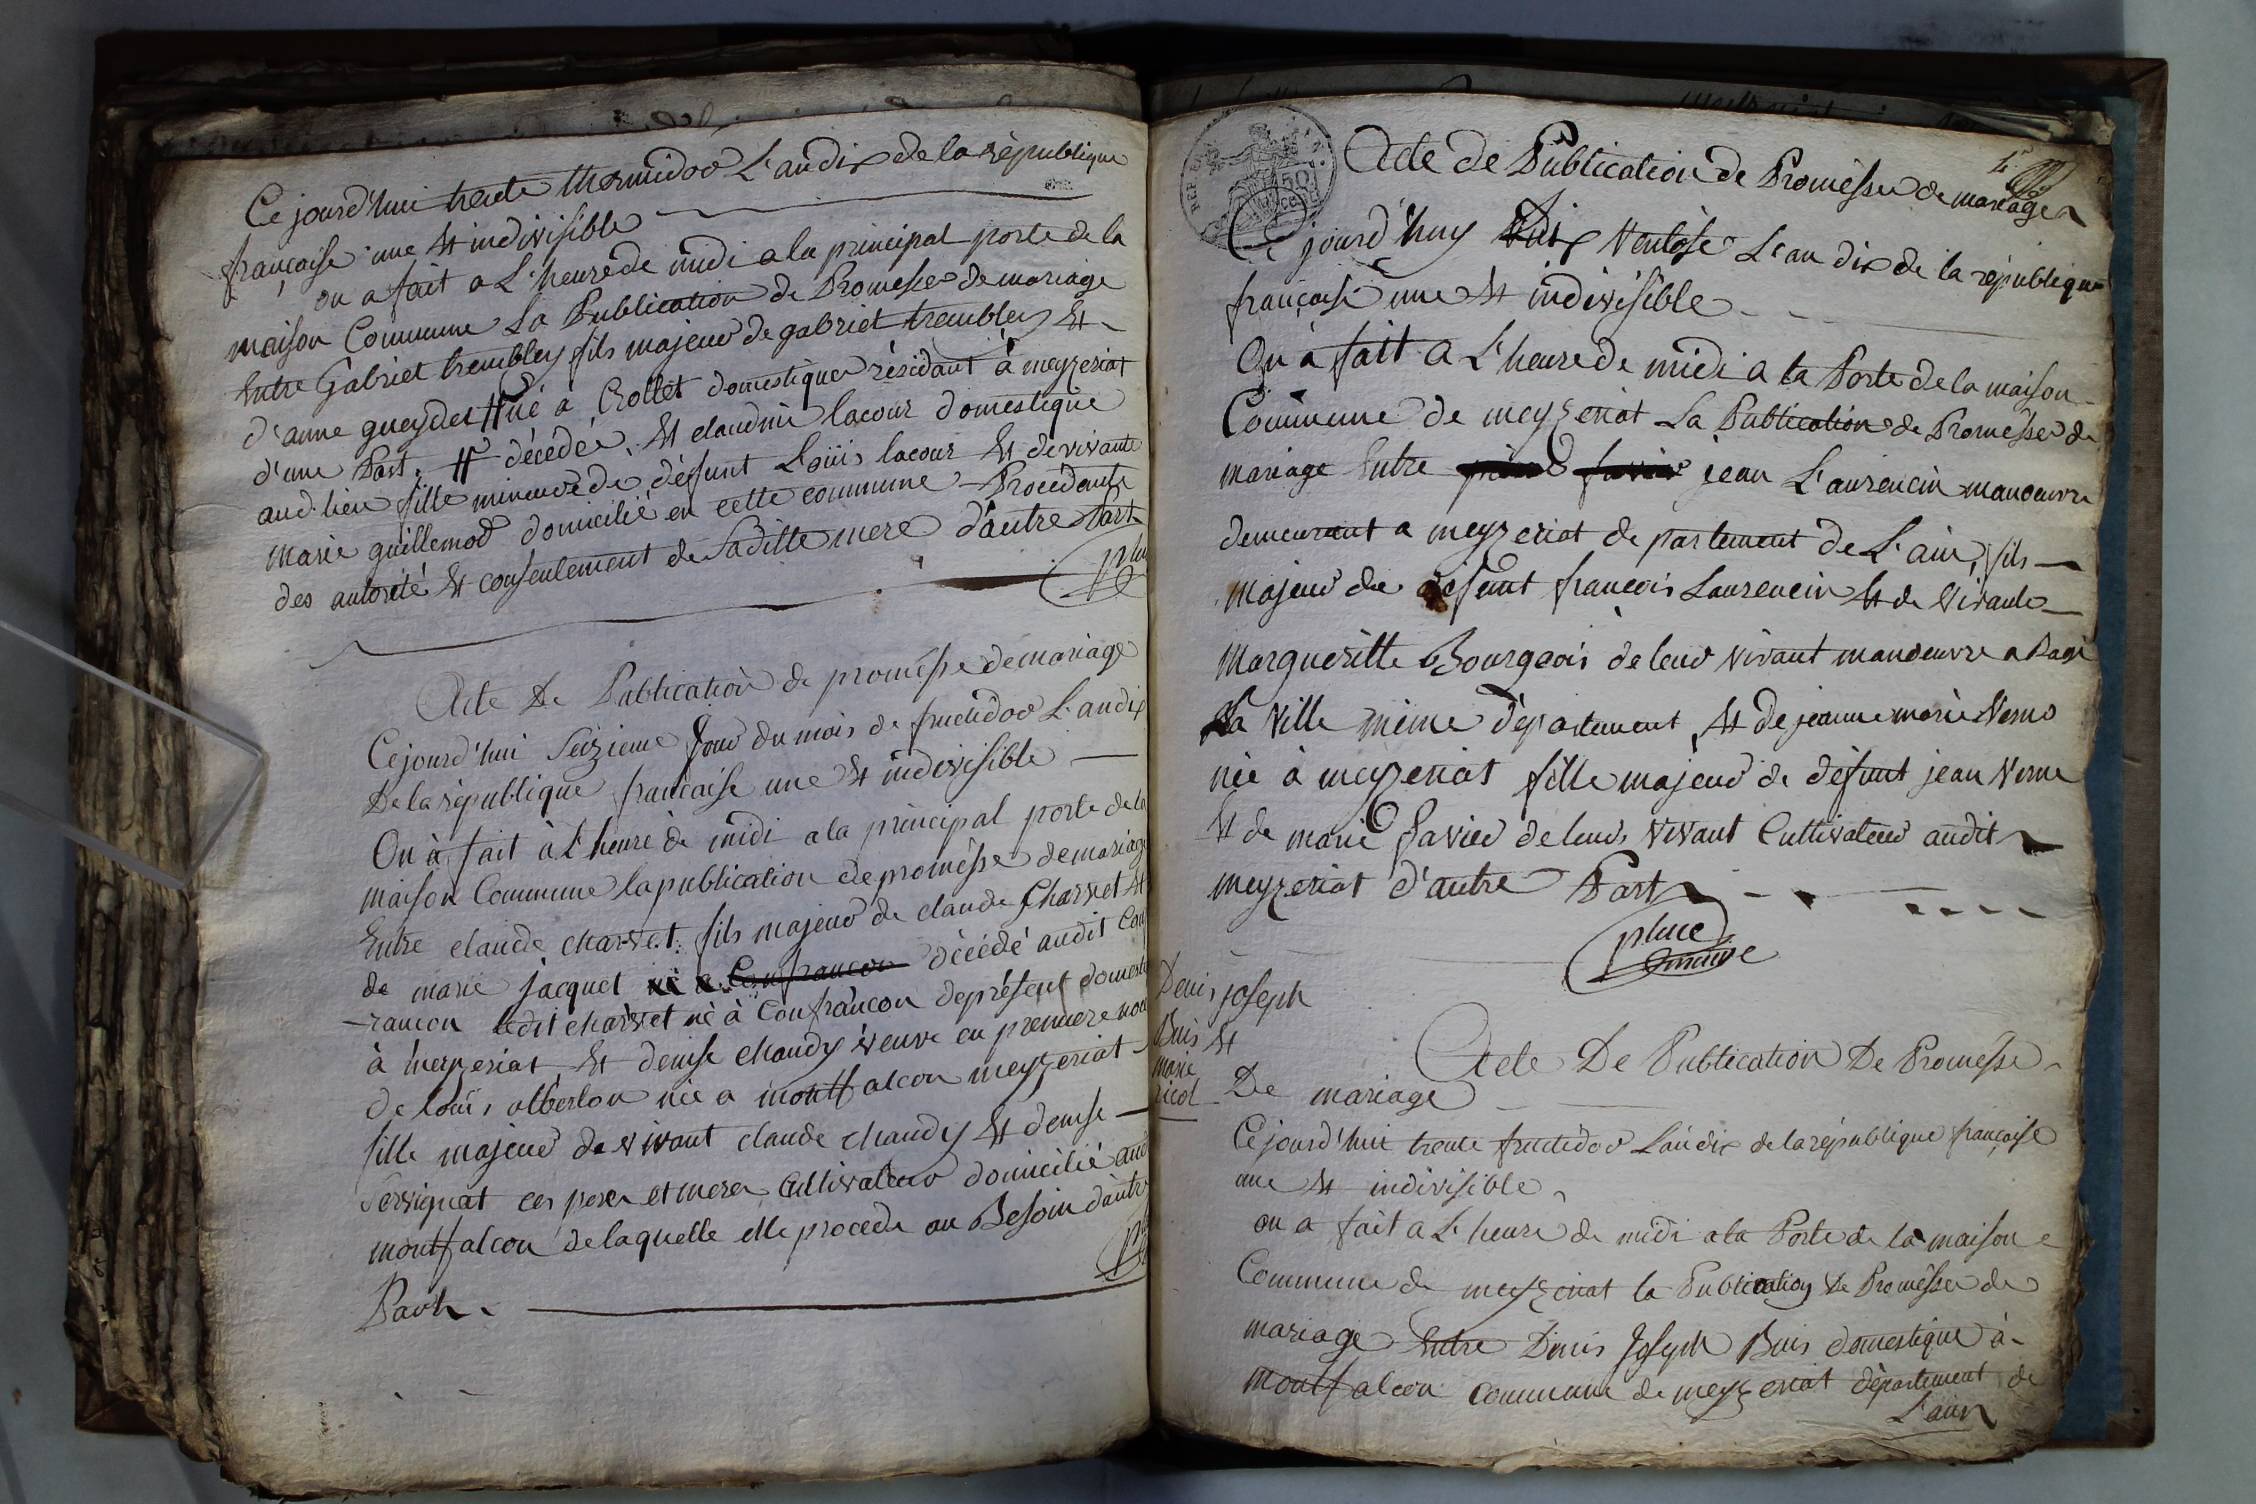 Ce jourd'hui trente thermidor L'an dix de la république
française une et indivisible
on a fait a L'heure de midi a la principal porte de la
maison Commune La Publication de Promesse de mariage
Entre Gabriel trembley fils majeur de gabriel trembley et
d'anne gueydet né à Crottet domestique résidant à meyzeriat
d'une Part. décédé. et claudine lacour domestique
aud. lieu fille mineure de défunt Louis lacour et de vivante
marie guillemod domicilié en cette commune Procédante
des autorité et consentement de Sa ditte mere d'autre Part
Acte De Publication de promesse de mariage
Cejourd'hui Seizieme Jour du mois de fructidor L'an dix
De la république française une et indivisible
On à fait à L'heure de midi a la principal porte de la
maison Commune la publication de promesse de mariage
Entre claude charvet fils majeur de claude Charvet et
de marie jacquet né a Confrancon décédé audit Con
-rancon ledit charvet né à Confrancon deprésent domest
à meyzeriat et denise chandy veuve en premiere no
de louis alberlon née a montfalcon meyzeriat
fille majeur de vivant claude chandy et denise
Servignat ces peres et meres Cultivateur domicilié aud
montfalcon de laquelle elle procede au Besoin d'autre
Part.
Acte de Publication de Promesse de mariage
Ce jourd'huy Ventôse L'an dix de la republique
française une et indivisible
On à fait a L'heure de midi a la Porte de la maison
Commune de meyzeriat La Publication de Promesse de
mariage Entre jean Laurencin manoeuvre
demeurant a meyzeriat departement de L'ain, fils
majeur de défunt françois Laurencin et de Vivante
Margueritte Bourgeois de leur vivant manoeuvre a Bagé
La Ville même département, et de jeanne marie Verne
née à meyzeriat fille majeur de défunt jean Verne
et de marie favier de leurs vivant Cultivateur audit
meyzeriat d'autre Part
place
maire
Denis joseph
Buis et
marie
nicol
Acte De Publication De Promesse
De mariage
Cejourd'hui trente fructidor L'an dix de la république française
une et indivisible
on a fait a L'heure de midi a la Porte de la maison
Commune de meyzeriat la Publication De Promesse de
mariage Entre Denis Joseph Buis domestique à
montfalcon commune de meyzeriat département de
L'ain